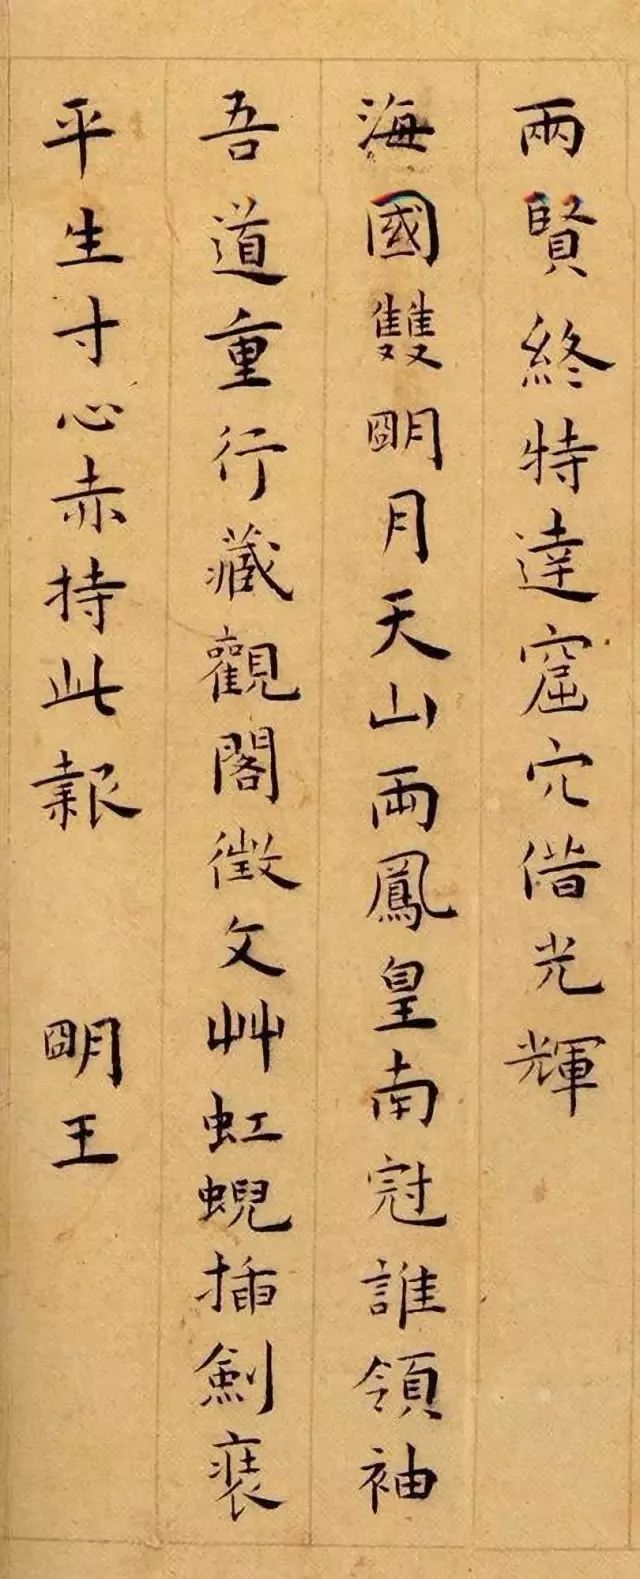 兩賢終特達窟穴偕光輝
海國雙朙月天山兩鳳皇南冠誰領袖
吾道重行藏觀閣徵文艸虹蜺插劍裝
平生寸心赤持此報 朙王